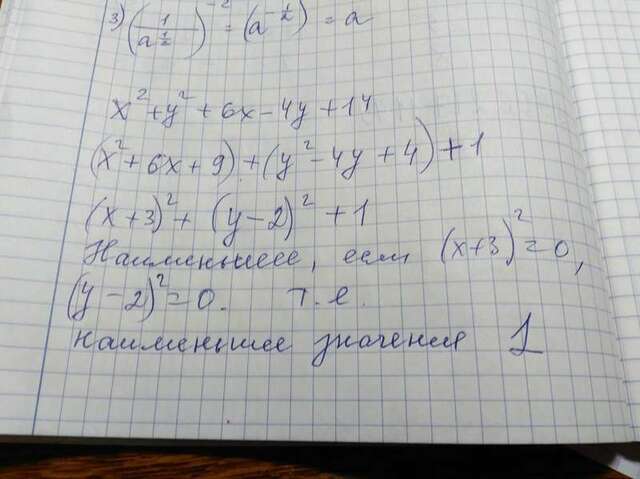 3) (1/a^(1/2))^-2 = (a^(-1/2)) = a
x² + y² + 6x - 4y + 14
(x² + 6x + 9) + (y² - 4y + 4) + 1
(x+3)² + (y-2)² + 1
Наименьшее, если (x+3)² = 0,
(y-2)² = 0. т.е.
наименьшее значения 1